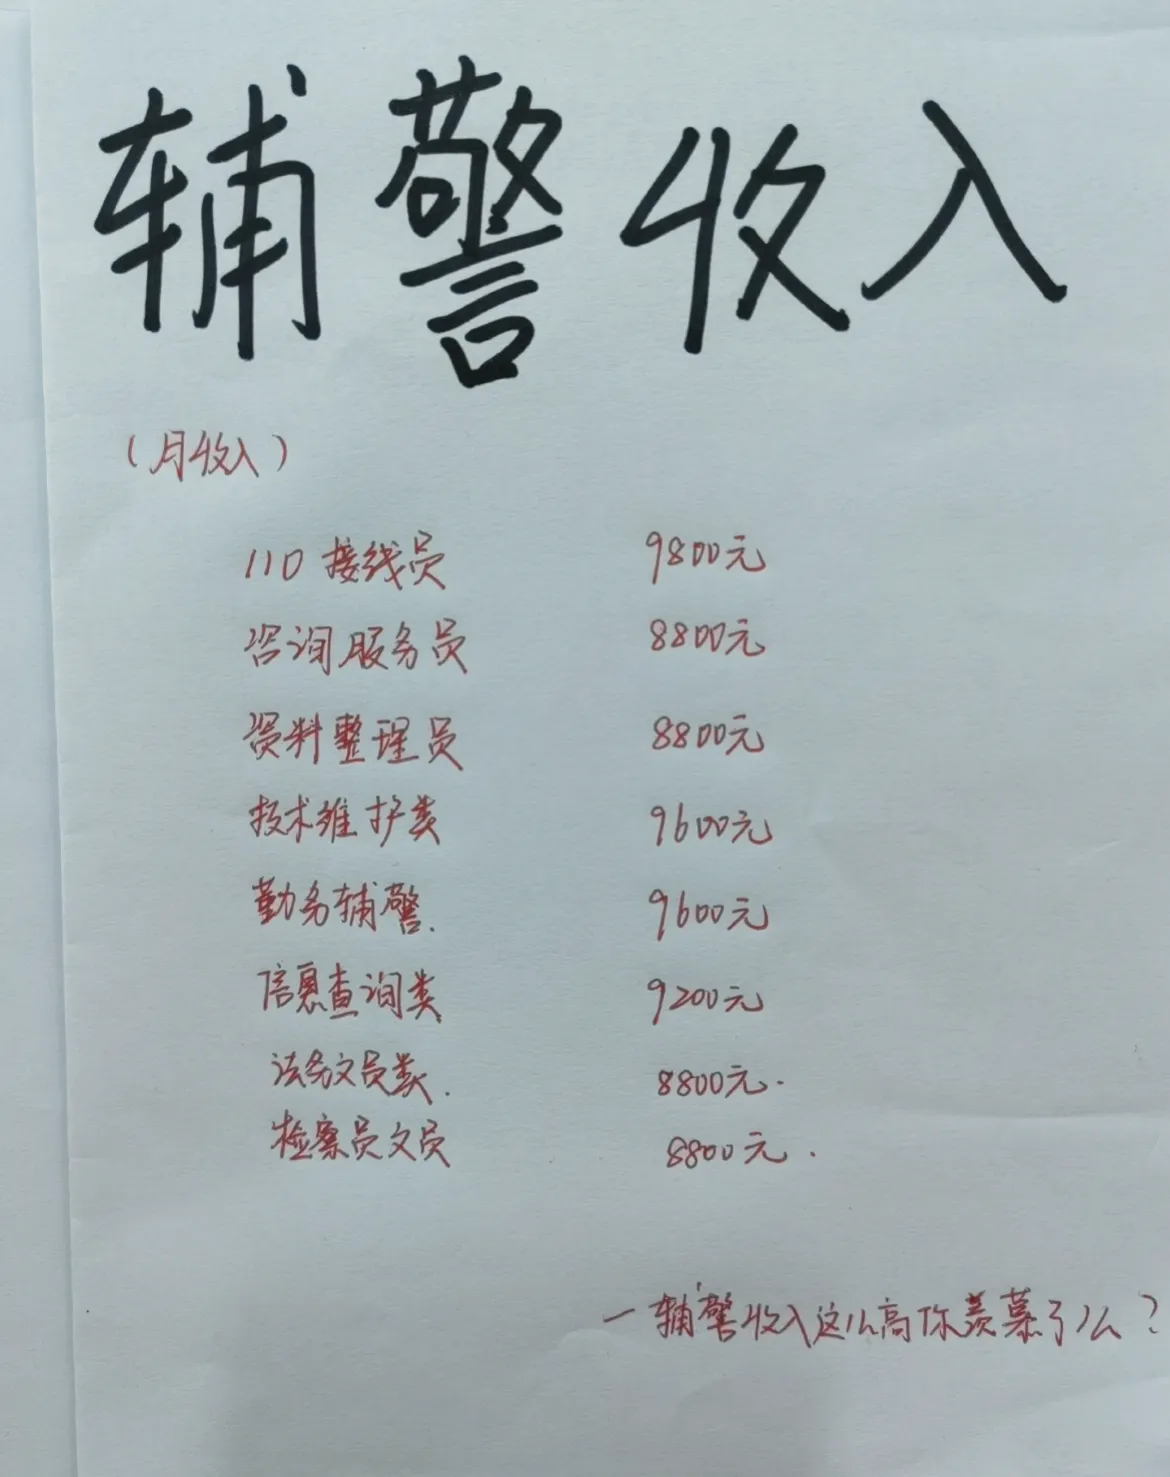 辅警收入
(月收入)
110接线员 9800元
咨询服务员 8800元
资料整理员 8800元
技术维护类 9600元
勤务辅警. 9600元
信息查询类 9200元
法务文员类. 8800元.
检察员文员 8800元.
一辅警收入这么高你羡慕了么?